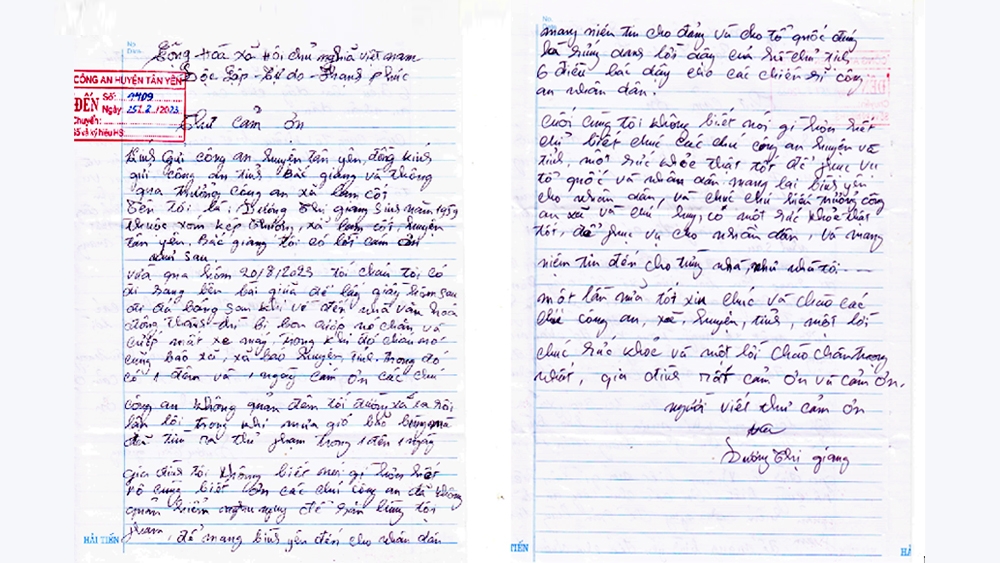 Cộng Hoà xã Hội chủ nghĩa việt nam
Độc Lập - Tự do - Hạnh phúc
CÔNG AN HUYỆN TÂN YÊN
ĐẾN Số: 1409
Ngày: 25/.8./2023
Chuyển:
Số và ký hiệu HS
Thư cảm ơn
Kính gửi công an huyện tân yên, đồng kính
gửi công an tỉnh Bắc giang và thông
qua trưởng công an xã lam cốt
Tên tôi là: Dương Thị giang sinh năm 1959
thuộc xóm kép thượng, xã lam cốt, huyện
tân yên. Bắc giang tôi có lời cảm ơn
như sau.
vừa qua hôm 20/8/2023 tối cháu tôi có
đi sang bên bãi giữa để lấy giầy hôm sau
đi đá bóng sau khi về đến nhà văn hoá
đông thành thì bị bọn cướp nó chặn, và
cướp mất xe máy, trong khi đó cháu nó
cũng báo xã, xã báo huyện, tỉnh. trong đó
có 1 đêm và 1 ngày cảm ơn các chú
công an không quản đêm tối đường xá xa xôi
lặn lội trong khi mưa gió bão bùng mà
đã tìm ra thủ phạm trong 1 đêm 1 ngày
gia đình tôi không biết nói gì hơn hết
vô cùng biết ơn các chú công an đã không
quản hiểm nguy để săn lùng tội
phạm, để mang bình yên đến cho nhân dân
HẢI TIẾN
mang niên tin cho đảng và cho tổ quốc đúng
là hùng danh lời dây của hồ chủ tịch,
6 điều bác dậy cho các chiến sĩ công
an nhân dân.
Cuối cùng tôi không biết nói gì hơn hết
chỉ biết chúc các chú công an huyện và
tỉnh, một sức khỏe thật tốt để phục vụ
tổ quốc và nhân dân mang lại bình yên
cho nhân dân, và chúc chú hiếu trưởng công
an xã và chú huy, có một sức khỏe thật
tốt, để phục vụ cho nhân dân, và mang
niềm tin đến cho từng nhà, như nhà tôi
một lần nữa tôi xin chúc và chào các
chú công an, xã, huyện, tỉnh, một lời
chúc sức khoẻ và một lời chào chân trọng
nhất, gia đình rất cảm ơn và cảm ơn.
người viết thư cảm ơn
Dương Thị giang
TIẾN